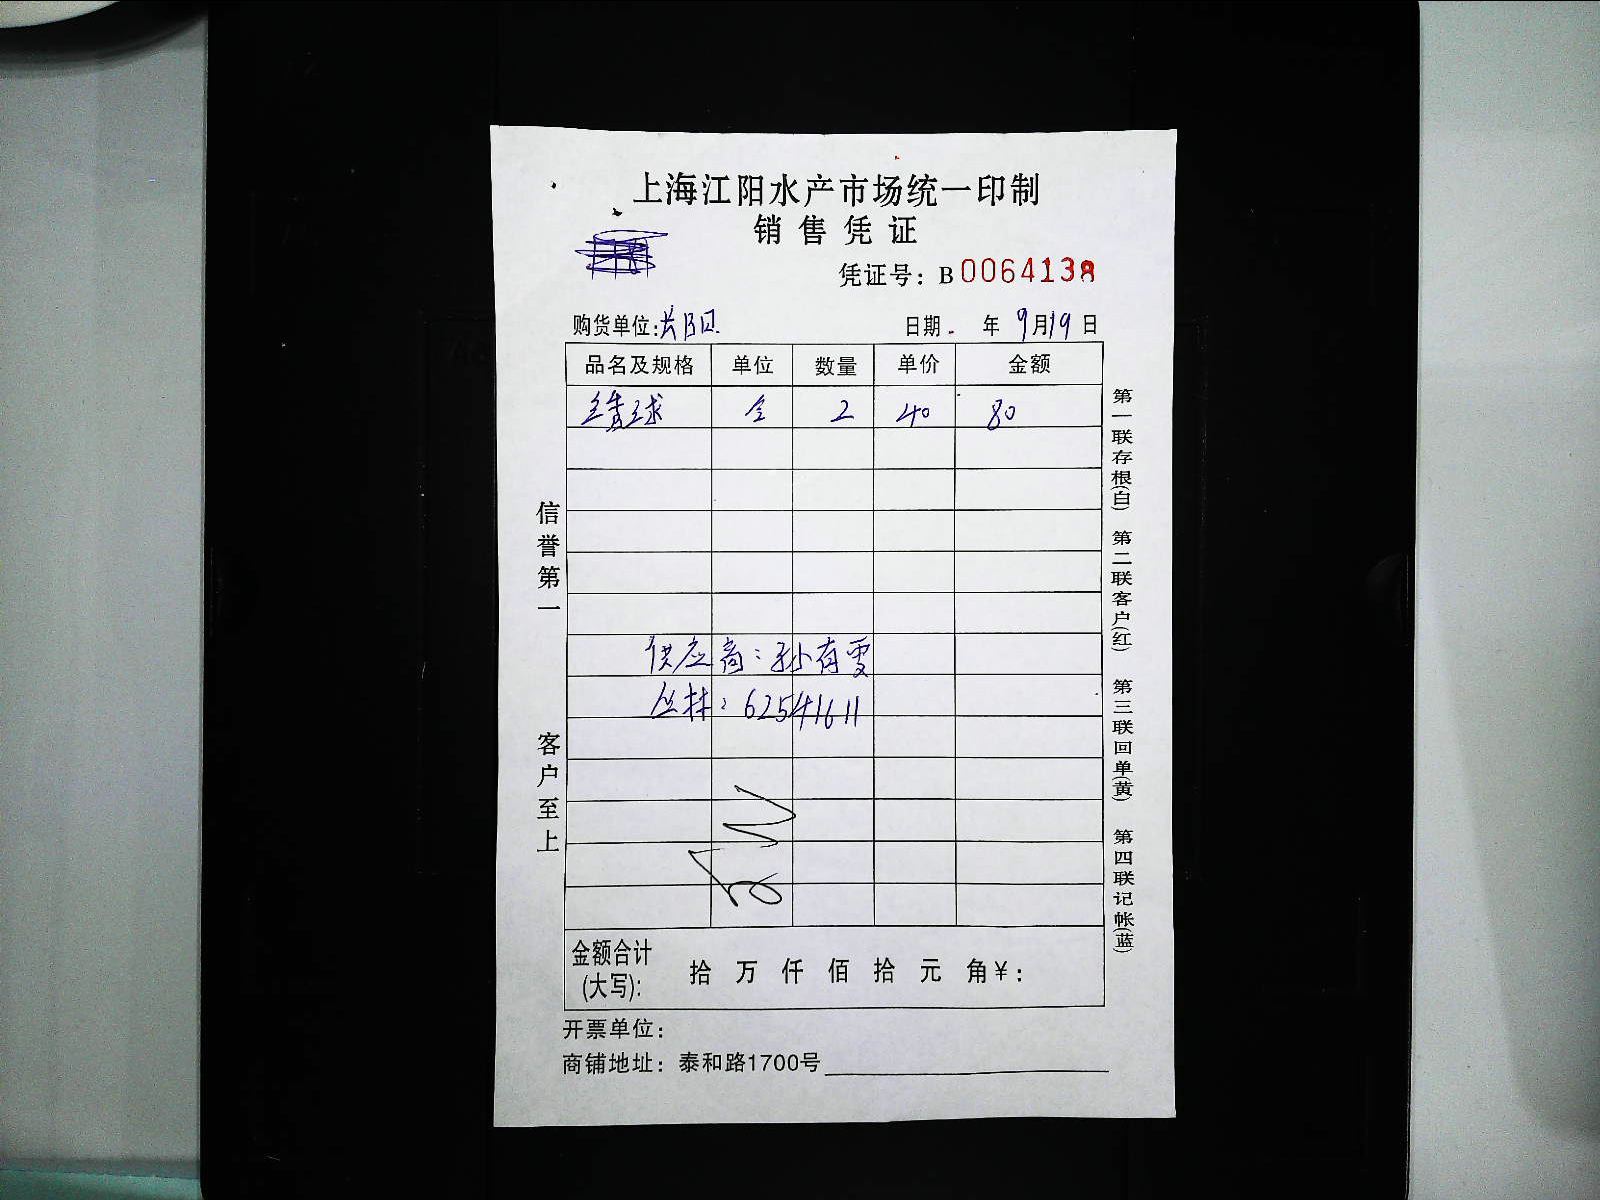 上海江阳水产市场统一印制
销售凭证
凭证号：B 0064138
购货单位：长阳 日期 年 9月19日
品名及规格 单位 数量 单价 金额
球 2 40 80
供应商：孙有雯
丛林：62541611
金额合计(大写)： 拾 万 仟 佰 拾 元 角 ¥：
开票单位：
商铺地址：泰和路1700号
信誉第一 客户至上
第一联存根(白) 第二联客户(红) 第三联回单(黄) 第四联记帐(蓝)